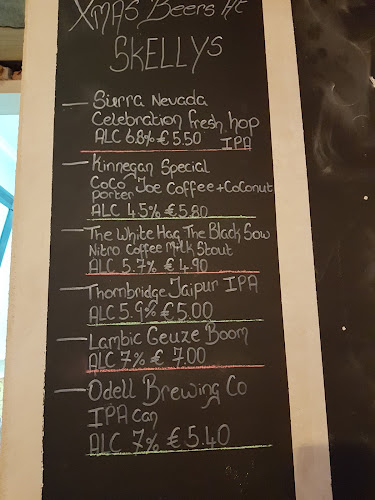 Xmas Beers At
SKELLYS
Sierra Nevada
Celebration fresh hop
ALC 6.8% €5.50 IPA
Kinnegan Special
CoCo Joe Coffee + Coconut
porter
ALC 4.5% €5.80
The White Hag The Black Sow
Nitro Coffee Milk Stout
ALC 5.7% €4.90
Thornbridge Jaipur IPA
ALC 5.9% €5.00
Lambic Geuze Boom
ALC 7% € 7.00
Odell Brewing Co
IPA Can
ALC 7% €5.40